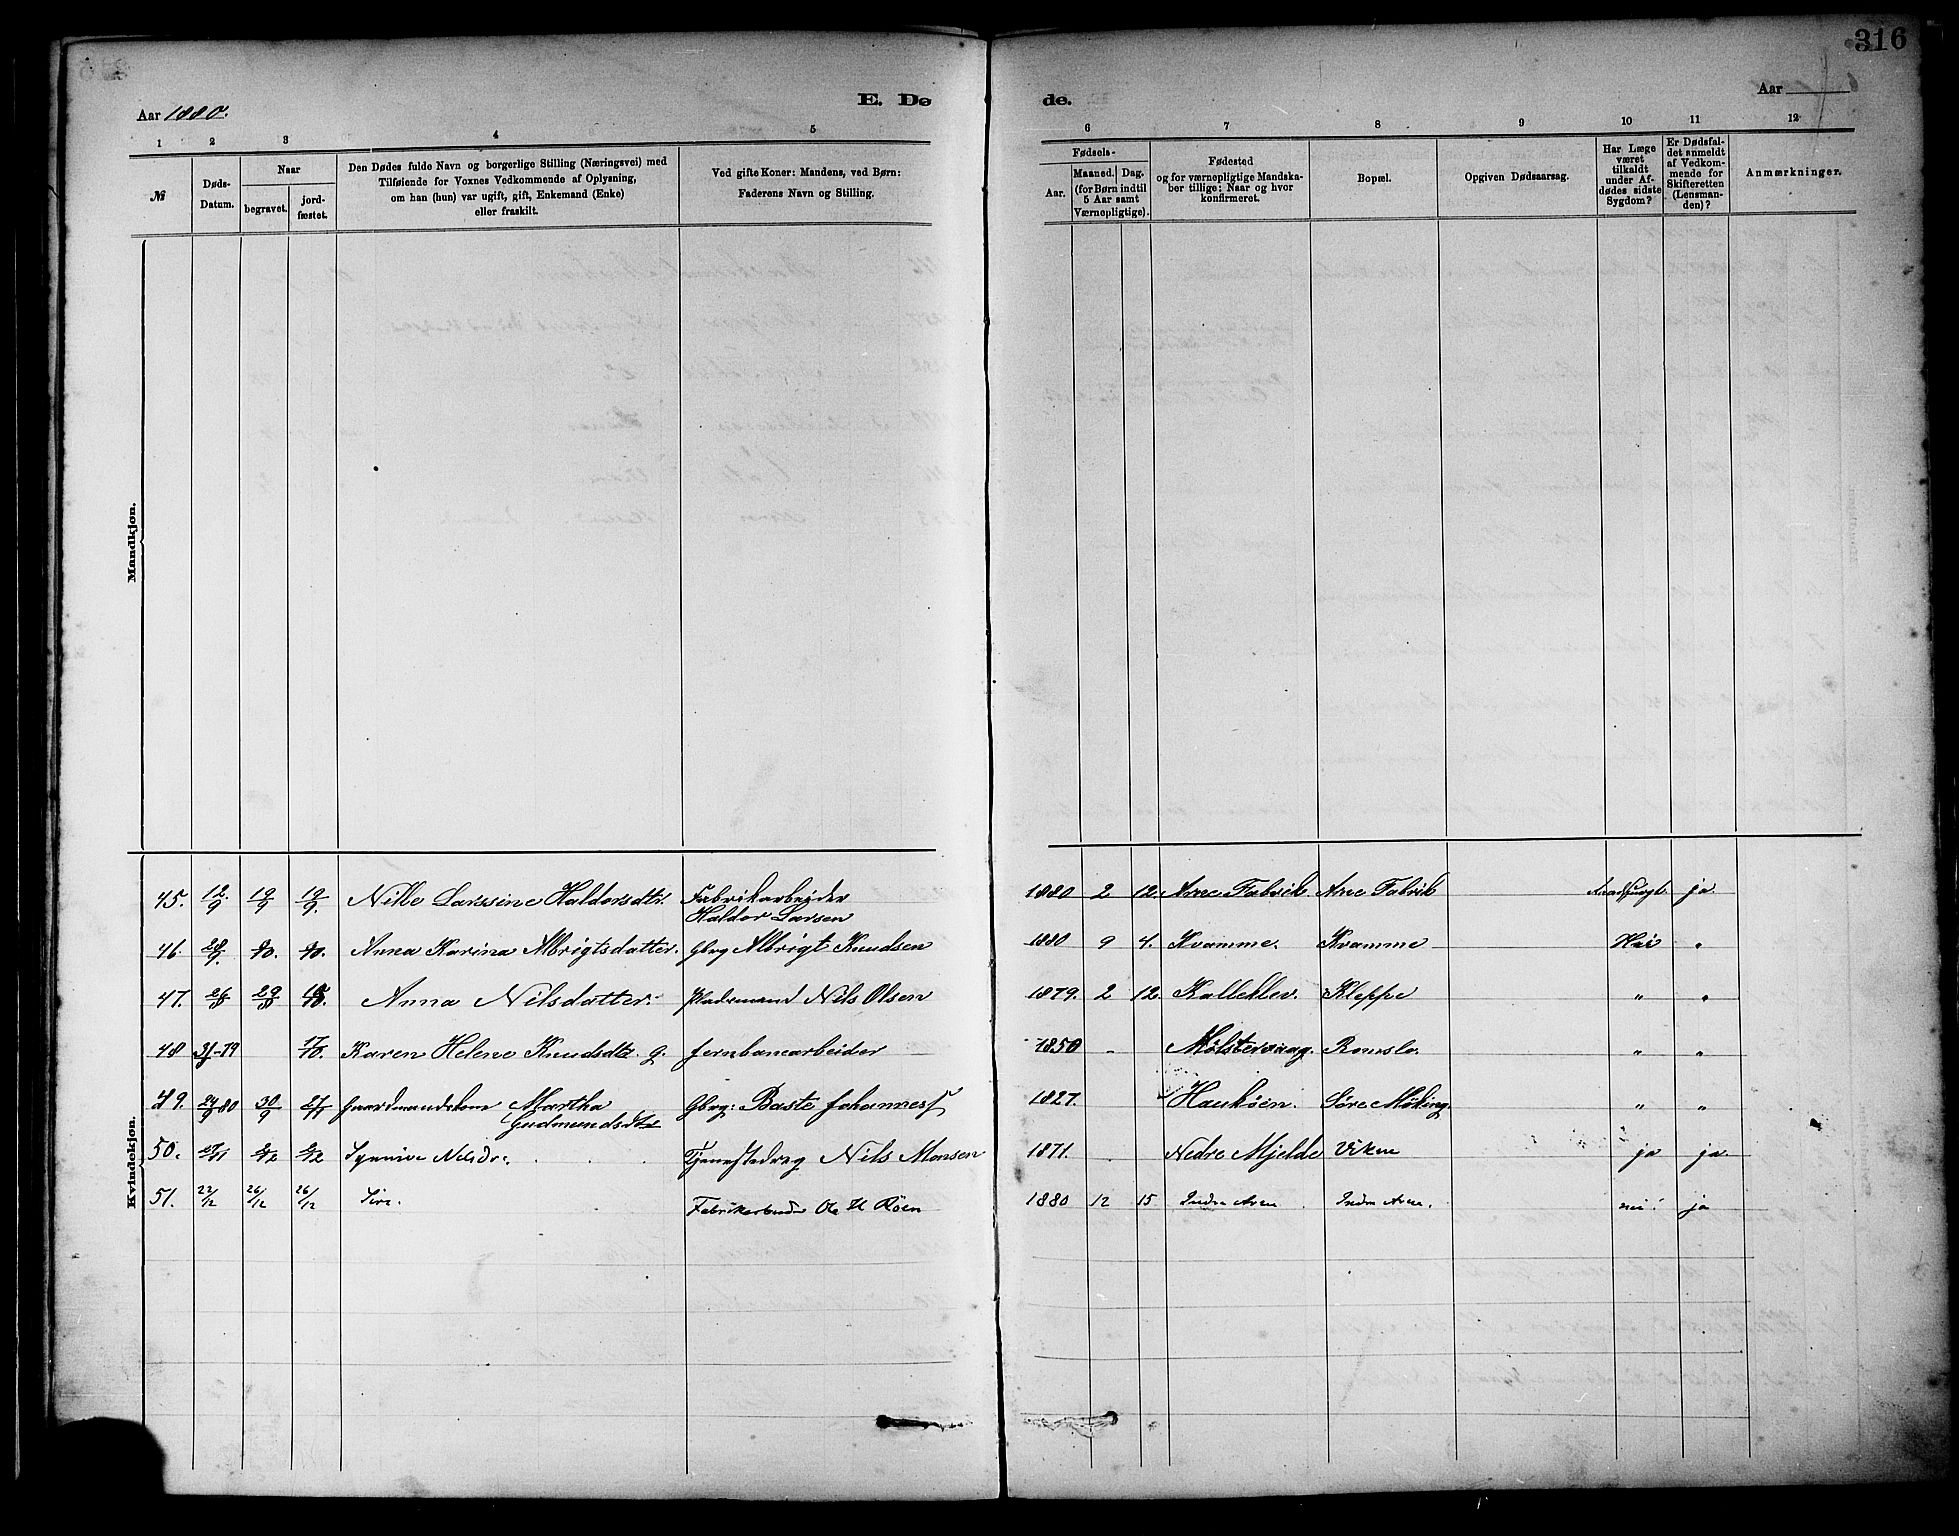 316
Aar 1880.
E. Dø
de.
Aar
1 2 3 4 5
6 7 8 9 10 11 12
№
Døds-
Datum.
Naar
begravet.
jord-
fæstet.
Den Dødes fulde Navn og borgerlige Stilling (Næringsvei) med
Tilføiende for Voxnes Vedkommende af Oplysning,
om han (hun) var ugift, gift, Enkemand (Enke)
eller fraskilt.
Ved gifte Koner: Mandens, ved Børn:
Faderens Navn og Stilling.
Fødsels-
Aar.
Maaned. Dag.
(for Børn indtil
5 Aar samt
Værnepligtige).
Fødested
og for værnepligtige Mandska-
ber tillige: Naar og hvor
konfirmeret.
Bopæl.
Opgiven Dødsaarsag.
Har Læge
været
tilkaldt
under Af-
dødes sidste
Sygdom?
Er Dødsfal-
det anmeldt
af Vedkom-
mende for
Skifteretten
(Lensman-
den)?
Anmærkninger.
Mandkjøn.
Kvindekjøn.
45. 12/9 19/9 19/9. Nille Larssine Haldorsdtr. Fabrikarbeider 1880 2 12. Arne Fabrik. Arne Fabrik ja
Haldor Larsen
46. Anna Karina Albrigtsdatter. Gbrg Albrigt Knudsen 1880 9 4. Kvamme. Kvamme Nei "
47. Anna Nilsdatter. Pladsmand Nils Olsen 1879. 2 12. Kalleklev. Kleppe " "
48 Karen Helene Knudsdtr. g. Jernbanearbeider 1850 - Mølstervaag. Romslo. " "
49. 30/9 Gaardmandskone Martha Gbrg: Baste Johanness 1827. Haukøen. Søre Møking. " "
Gudmundsdtr
50. Synnive Nilsdr. Tjenestedreg Nils Monsen 1871. Nedre Mjelde Viken ja ja
51. 22/12 26/12 26/12 Siri. Fabrikarbeider Ole H Røen 1880 12 15 Indre Arne Indre Arne. nei! ja